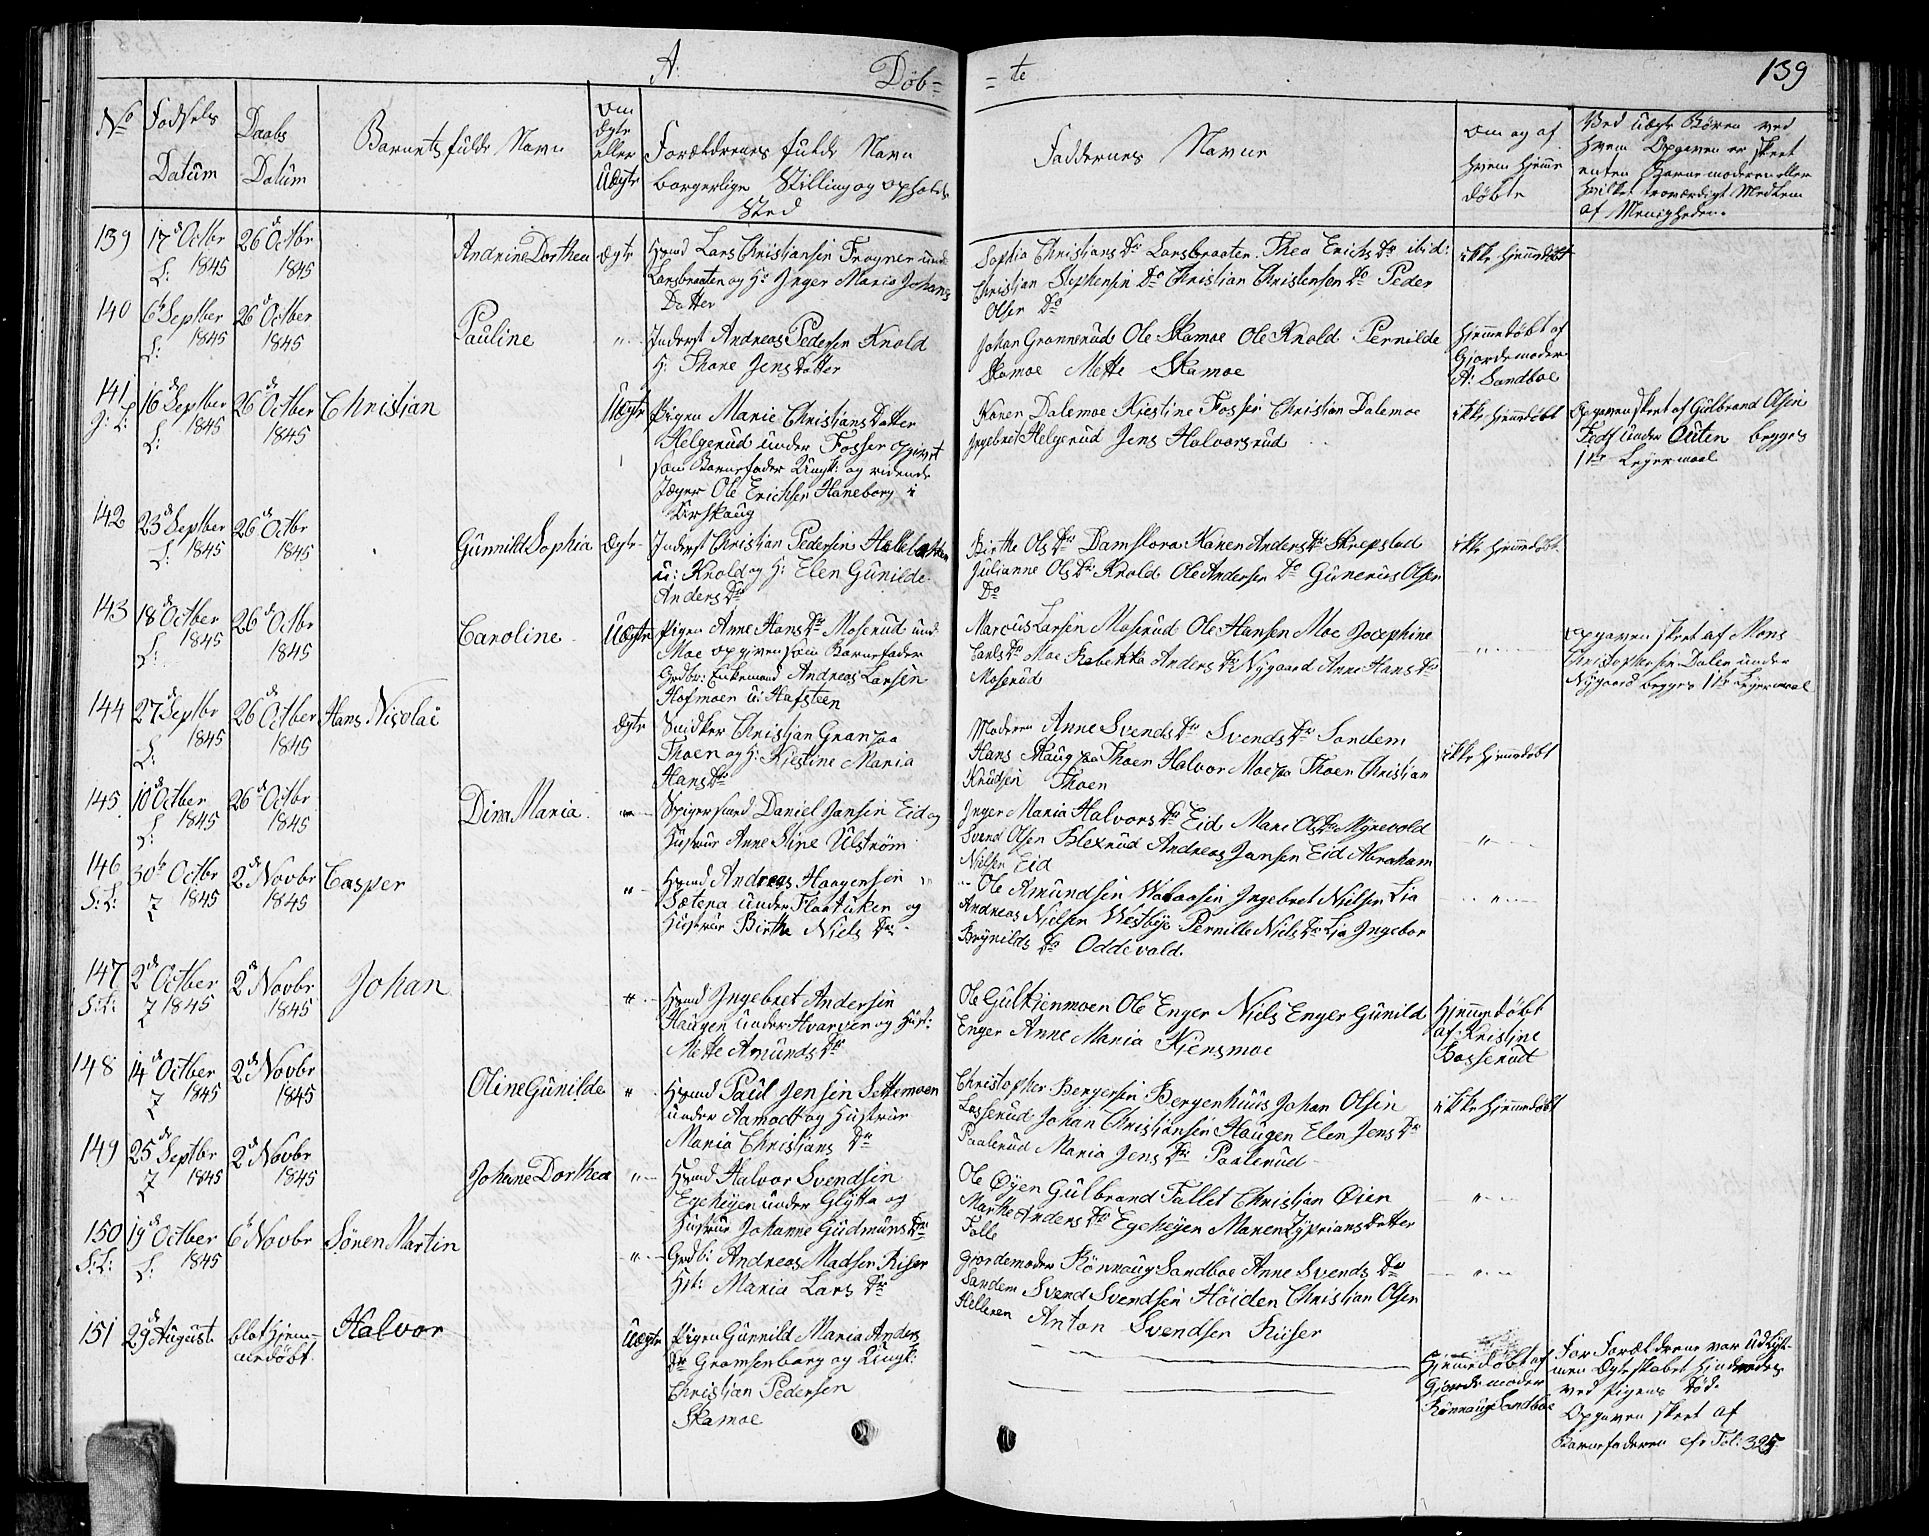 A:
Døb=
=te
139
No
Fødsels
Datum
Daabs
Datum
Barnets fulde Navn
Om
Ægte
eller
Uægte
Forældrenes fulde Navn
borgerlige Stilling og Opholds
Sted
Faddernes Navne
Om og af
hvem hjemme
døbte
Ved uægte Børn ved
hvem Opgaven er skeet
enten Barnemoderen eller
hvilket troværdigt Medlem
af Menigheden.
139
17d Octbr
L: 1845
26d Octbr
1845
Andrine Dorthea
Ægte
Hmd Lars Christiansen Frogner und:
Larsbraaten og H: Inger Maria Johans
Datter
Sophia Christians Dr Larsbraaten. Thea Erichs Dr ibid:
Christian Stephensen Do Christian Christensen Do Peder
Olsen Do
ikke hjemdøbt
140
6te Septber
L: 1845
26d Octber
1845
Pauline
"
Inderst Andreas Pedersen Knold
H: Thore Jensdatter
Johan Grannerud Ole Skamoe Ole Knold Pernilde
Skamoe Mette Skamoe
Hjemmedøbt af
Gjordemoder
A: Sandboe
141
16d Septbr
L: 1845
26d Octber
1845
Christian
Uægte
Pigen Marie Christians Datter
Helgerud under Fosser opgivet
som Barnefader Ungk: og ridende
Jæger Ole Erichsen Haneborg i
Urskaug
Karen Dalemoe Kjestine Fosser Christian Dalemoe
Ingebret Helgerud Jens Halvorsrud
ikke hjemdøbt
Opgaven skeet af Gulbrand Olsen
under Outen begges
1ste Leiermaal
142
23d Septber
L: 1845
26d Octbr
1845
Gunnild Sophia
Ægte
Inderst Christian Pedersen
u: Knold og H: Elen Gunilde
Anders Dr
Birthe Ols Dr Damflora Karen Anders Dr Skrepstad
Julianne Ols Dr Knold Ole Andersen Do Gunerius Olsen
Do
ikke hjemdøbt
143
18d Octber
L: 1845
26d Octbr
1845
Caroline
Uægte
Pigen Anne Hans Dr Moserud und
Moe opgiven som Barnefader
Grdbr: Enkemand Andreas Larsen
Hofmoen u: Hafsteen
Marcus Larsen Moserud Ole Hansen Moe Josephine
Carls Dr Moe Rebekka Anders Dr Nygaard Anne Hans Dr
Moserud
"
Opgaven skeet af Mons
Christophersen Dalen under
Nygaard begges 1ste Leiermaal
144
27d Septbr
L: 1845
26d Octber
1845
Hans Nicolai
Ægte
Snidker Christian Gran paa
Thoen og H: Kjestine Maria
Hans Dr
Moderen Anne Svends Dr Svends Dr Sandem
Hans Skaug paa Thoen Halvor Moe paa Thoen Christian
Knudsen Thoen
ikke hjemdøbt
145
10d Octber
L: 1845
26d Octbr
1845
Dina Maria
"
Daniel Jansen Eid og
Hustrue Anne Stine Ulstrøm
Inger Maria Halvors Dr Eid Mari Ols Dr Myrevold
Svend Olsen Blexrud Andreas Jansen Eid Abraham
Nilsen Eid
"
146
S: L:
30te Octbr
1845
2d Novbr
1845
Casper
"
Hmd Andreas Haagensen
Sætena under Flaatuken og
Hustrue Birthe Niels Dr
Ole Amundsen Ingebret Nielsen Lia
Andreas Nielsen Westbye Pernille Niels Dr Lia Ingebor
Brynilds Dr Oddevold
"
147
S: L:
2d Octber
1845
2d Novbr
1845
Johan
"
Hmd Ingebret Andersen
Haugen under Hvarven og Hust:
Mette Amunds Dr
Ole Gulkjenmoen Ole Enger Niels Enger Gunild
Enger Anne Maria Kjensmoe
Hjemmedøbt
af Kristine
Bosserud
148
14d Octber
1845
2d Novbr
1845
Oline Gunilde
"
Hmd Paul Jensen Settemoen
under Aamodt og Hustrue
Maria Christians Dr
Christopher Bergersen Bergenhuus Johan Olsen
Losserud Johan Christiansen Haugen Elen Jens Dr
Paalerud Maria Jens Dr Paalerud
ikke hjemdøbt
149
25d Septbr
1845
2d Novbr
1845
Johane Dorthea
"
Hmd Halvor Svendsen
Egehejen under Glytta og
Hustrue Johanne Gudmuns Dr
Ole Øyen Gulbrand Fallet Christian Øien
Marthe Anders Dr Egehejen Maren Zyprians Datter
Falle
"
150
S: L:
19d Octber
L: 1845
6te Novbr
Søren Martin
"
Grdb: Andreas Madsen Riser
Hst: Maria Lars Dr
Gjordemoder Rønnaug Sandboe Anne Svends Dr
Sandem Svend Svendsen Høiden Christian Olsen
Helleren Anton Svendsen Riiser
"
151
29d August
blot hjem-
medøbt
Halvor
Uægte
Pigen Gunnild Maria Anders
Dr Gromsenborg og Ungk:
Christian Pedersen
Skamoe
Hjemmedøbt af
Gjordemoder
Rønnaug Sandboe
For Forældrene var udlyst
men Ægteskabet hindredes
ved Pigens Død.
Opgaven skeet af
Barnefaderen cfr Fol: 395